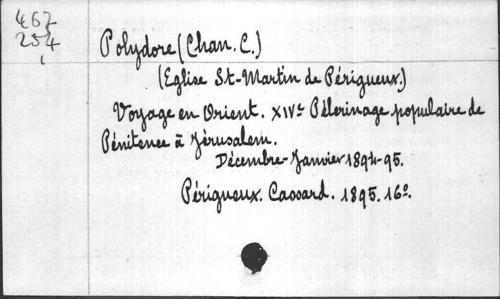 467
254
1
Polydore (Chan. C.)
(Eglise St-Martin de Périgueux.)
Voyage en Orient. XIVe Pélerinage populaire de
Pénitence à Jérusalem.
Décembre-Janvier 1894-95.
Périgueux. Cassard. 1895. 16º.